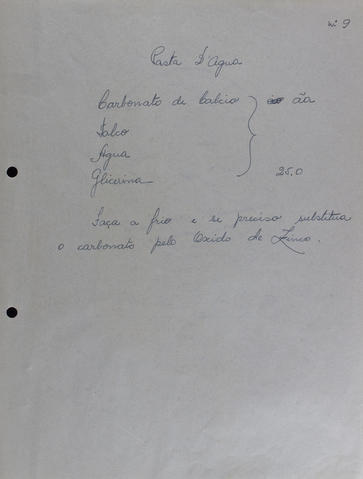 nº 9
Pasta D'Agua
Carbonato de Calcio āa
Talco
Agua
Glicerina 25.0
Faça a frio e se preciso substitua
o carbonato pelo Oxido de Zinco.